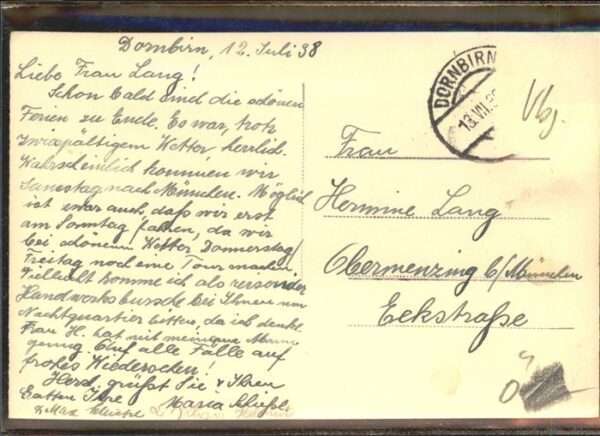 Dornbirn, 12. Juli 38
Liebe Frau Lang!
Schon bald sind die schönen
Ferien zu Ende. Es war, trotz
zwiespältigem Wetter herrlich.
Wahrscheinlich kommen wir
Samstag nach München. Möglich
ist zwar auch, daß wir erst
am Sonntag fahren, da wir
bei schönem Wetter Donnerstag/
Freitag noch eine Tour machen.
Vielleicht komme ich als reisender
Handwerksbursche bei Ihnen um
Nachtquartier bitten, da ich denke
Frau H. hat mit meinem Mann
genug. Auf alle Fälle auf
frohes Wiedersehen!
Herzl. grüßt Sie & Ihren
Gatten Ihre Maria
& Max
DORNBIRN
13.VII.
Vbg.
Frau
Hermine Lang
Obermenzing b/München
Eckstraße
Ö